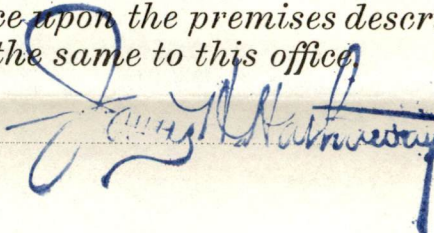 ce upon the premises descr
the same to this office.
James H. Hathaway